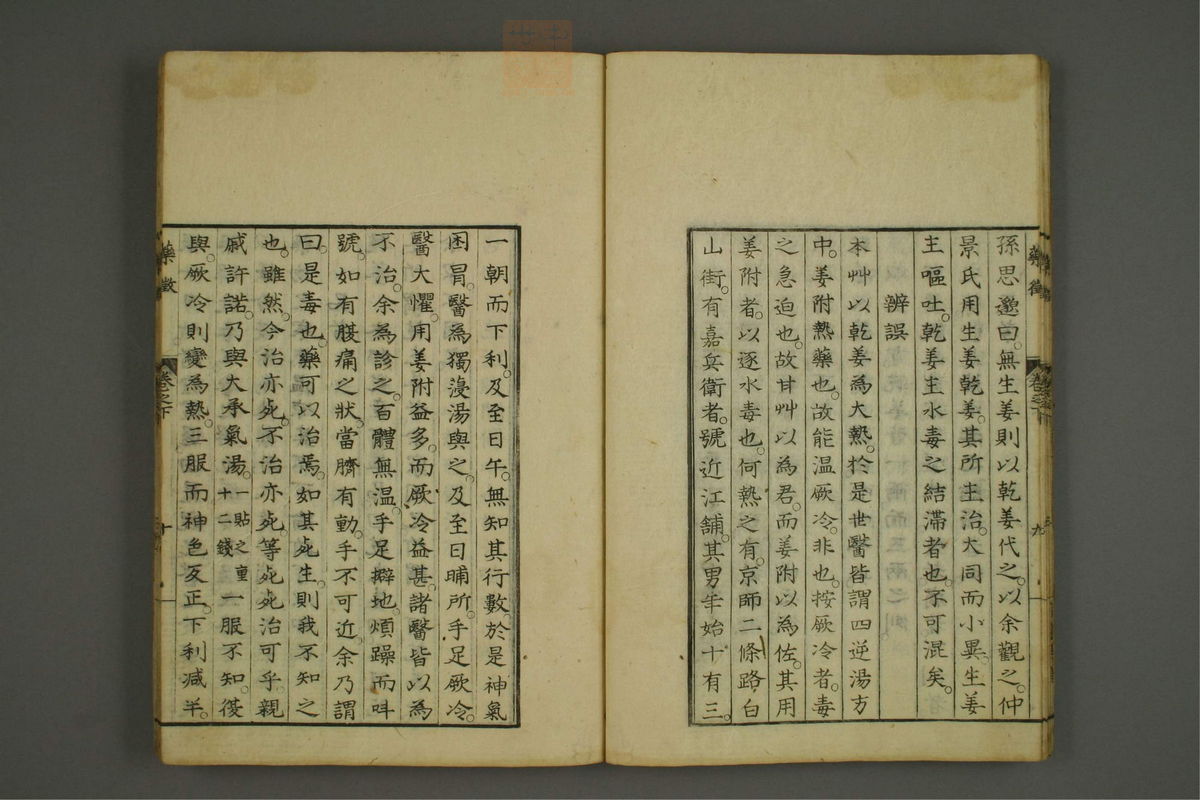 孫思邈曰。無生姜則以乾姜代之。以余觀之。仲
景氏用生姜乾姜。其所主治。大同而小異。生姜
主嘔吐。乾姜主水毒之結滯者也。不可混矣。
辨誤
本艸以乾姜為大熱。於是世醫皆謂四逆湯方
中。姜附熱藥也。故能温厥冷。非也。按厥冷者。毒
之急迫也。故甘艸以為君。而姜附以為佐。其用
姜附者。以逐水毒也。何熱之有。京師二條路白
山街。有嘉兵衛者。號近江舖。其男年始十有三。
藥徵
卷之下
九
一朝而下利。及至日午。無知其行數。於是神氣
困冒。醫為獨蓡湯與之。及至日晡所。手足厥冷。
醫大懼。用姜附益多。而厥冷益甚。諸醫皆以為
不治。余為診之。百體無温。手足擗地。煩躁而叫
號。如有腹痛之狀。當臍有動。手不可近。余乃謂
曰。是毒也。藥可以治焉。如其死生。則我不知之
也。雖然。今治亦死。不治亦死。等死死治可乎。親
戚許諾。乃與大承氣湯。一貼之重十二錢一服不知。復
與。厥冷則變為熱。三服而神色反正。下利減半。
藥徵
卷之下
十